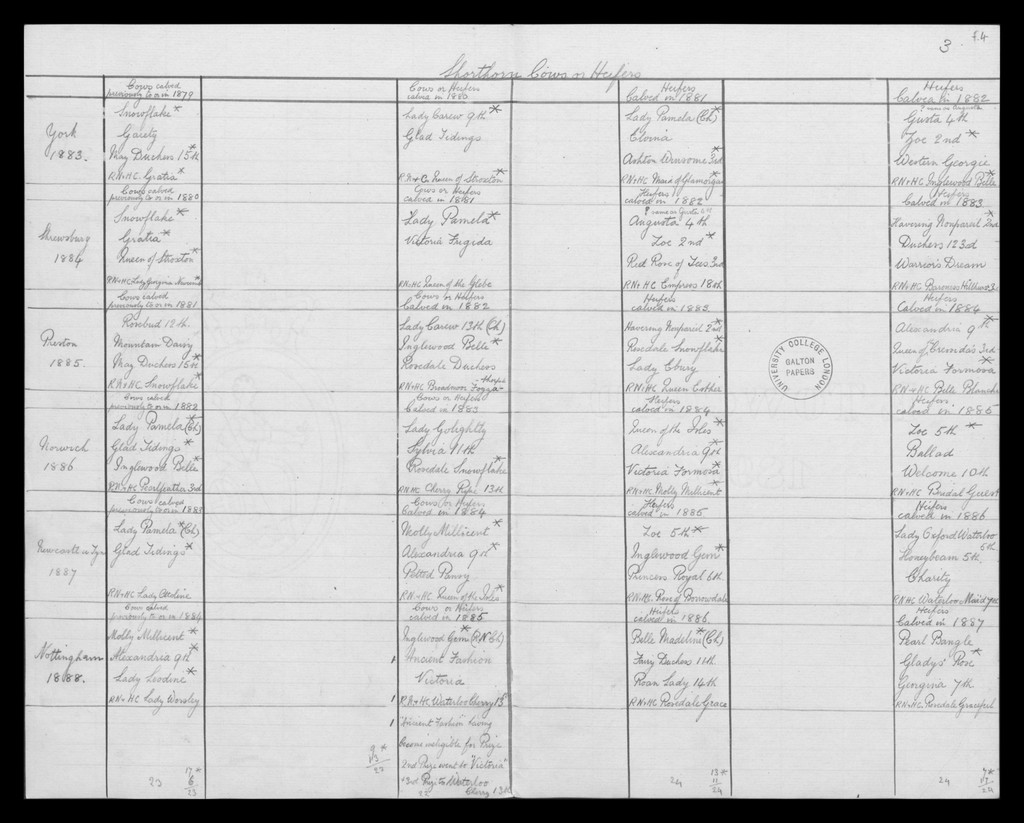 3 f.4
Shorthorn Cows or Heifers
York
1883.
Cows calved
previously to or in 1879
Snowflake*
Gaiety
May Duchess 15th
RN+HC. Gratia*
Cows or Heifers
calved in 1880
Lady Carew 9th*
Glad Tidings
R.N+C. Queen of Stroxton*
Heifers
Calved in 1881
Lady Pamela (Ch)*
Elvina
Ashton Winsome 3rd
RN+HC Maid of Glamorgan*
Heifers
Calved in 1882
? same as Augusta
Gusta 4th
Zoe 2nd*
Western Georgie
RN+HC Inglewood Belle*
Shrewsbury
1884
Cows calved
previously to or in 1880
Snowflake*
Gratia*
Queen of Stroxton*
RN+HC Lady Georgina
Cows or Heifers
calved in 1881
Lady Pamela*
Victoria Frigida
RN+HC Queen of the Glebe
Heifers
calved in 1882
? same as Gusta 4th
Augusta 4th
Zoe 2nd*
Red Rose of Tees 3rd
RN+HC Empress 18th
Heifers
Calved in 1883
Havering Nonpareil 2nd*
Duchess 123d
Warrior's Dream
RN+HC Baroness
Preston
1885.
Cows calved
previously to or in 1881
Rosebud 12th.
Mountain Daisy
May Duchess 15th*
R.N+HC. Snowflake*
Cows or Heifers
Calved in 1882
Lady Carew 13th (Ch)
Inglewood Belle*
Rosedale Duchess
RN+HC Broadmoor
Heifers
calved in 1883.
Havering Nonpareil 2nd*
Rosedale Snowflake*
Lady Ebury
RN+HC Queen Esther
Heifers
Calved in 1884
Alexandria 9th*
Queen of 3rd
Victoria Formosa*
RN+HC Belle Blanche
UNIVERSITY COLLEGE LONDON
GALTON
PAPERS
Norwich
1886
Cows calved
previously to or in 1882
Lady Pamela (Ch)*
Glad Tidings*
Inglewood Belle*
RN+HC Pearlfeather 3rd
Cows or Heifers
Calved in 1883
Lady Golightly
Sylvia 11th
Rosedale Snowflake*
RN HC Cherry Ripe 13th
Heifers
calved in 1884
Queen of the Isles*
Alexandria 9th*
Victoria Formosa*
RN+HC Molly Millicent*
Heifers
calved in 1885
Zoe 5th*
Ballad
Welcome 10th
RN+HC Bridal Guest
Newcastle on Tyne
1887
Cows calved
previously to or in 1883
Lady Pamela*(Ch)
Glad Tidings*
RN+HC Lady Leodine
Cows or Heifers
Calved in 1884
Molly Millicent*
Alexandria 9th*
Petted Pansy
RN+HC Queen of the Isles*
Heifers
calved in 1885
Zoe 5th*
Inglewood Gem*
Princess Royal 6th.
RN+HC. Rose of Borrowdale
Heifers
calved in 1886
Lady Oxford Waterloo
5th
Honeybeam 5th.
Charity
RN HC Waterloo Maid 7th
Nottingham
1888.
Cows calved
previously to or in 1884
Molly Millicent*
Alexandria 9th*
Lady Leodine*
RN+HC Lady Worsley
Cows or Heifers
calved in 1885
Inglewood Gem*(RN Ch)
1 Ancient Fashion
Victoria
1 R.N+HC Waterloo Cherry 13th
Heifers
calved in 1886.
Belle Madeline*(Ch)
Fairy Duchess 11th
Roan Lady 14th
RN+HC Rosedale Grace
Heifers
Calved in 1887
Pearl Bangle
Gladys Rose
Georgina 7th
RN+HC. Rosedale Graceful
1 "Ancient Fashion" having
become ineligible for Prize
2nd Prize went to "Victoria"
+3rd Prize to Waterloo
Cherry 13th
23
17*
6
23
9*
13
22
22
24
13*
11
24
24
7*
17
24